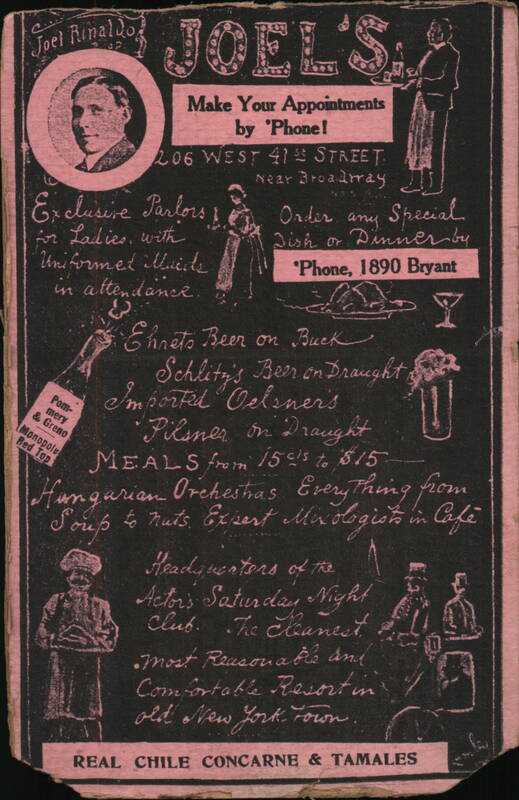 Joel Rinaldo
Prop
JOEL'S
Make Your Appointments
by 'Phone!
206 WEST 41st STREET.
Near Broadway
Exclusive Parlors
for Ladies, with
Uniformed Maids
in attendance.
Order any Special
Dish or Dinner by
'Phone, 1890 Bryant
Ehrets Beer on Buck
Schlitz's Beer on Draught
Imported Oelsners
Pilsner on Draught
Pom-
mery
& Greno
Monopole
Red Top
MEALS from 15cts to $15
Hungarian Orchestras Everything from
Soup to nuts. Expert Mixologists in Café
Headquarters of the
Actor's Saturday Night
Club. The Cleanest,
most Reasonable and
Comfortable Resort in
old New York Town.
REAL CHILE CONCARNE & TAMALES